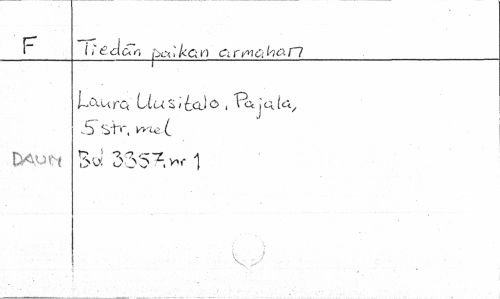 F Tiedän paikan armahan
Laura Uusitalo, Pajala,
5 str, mel
DAUM Bd 3357, nr 1